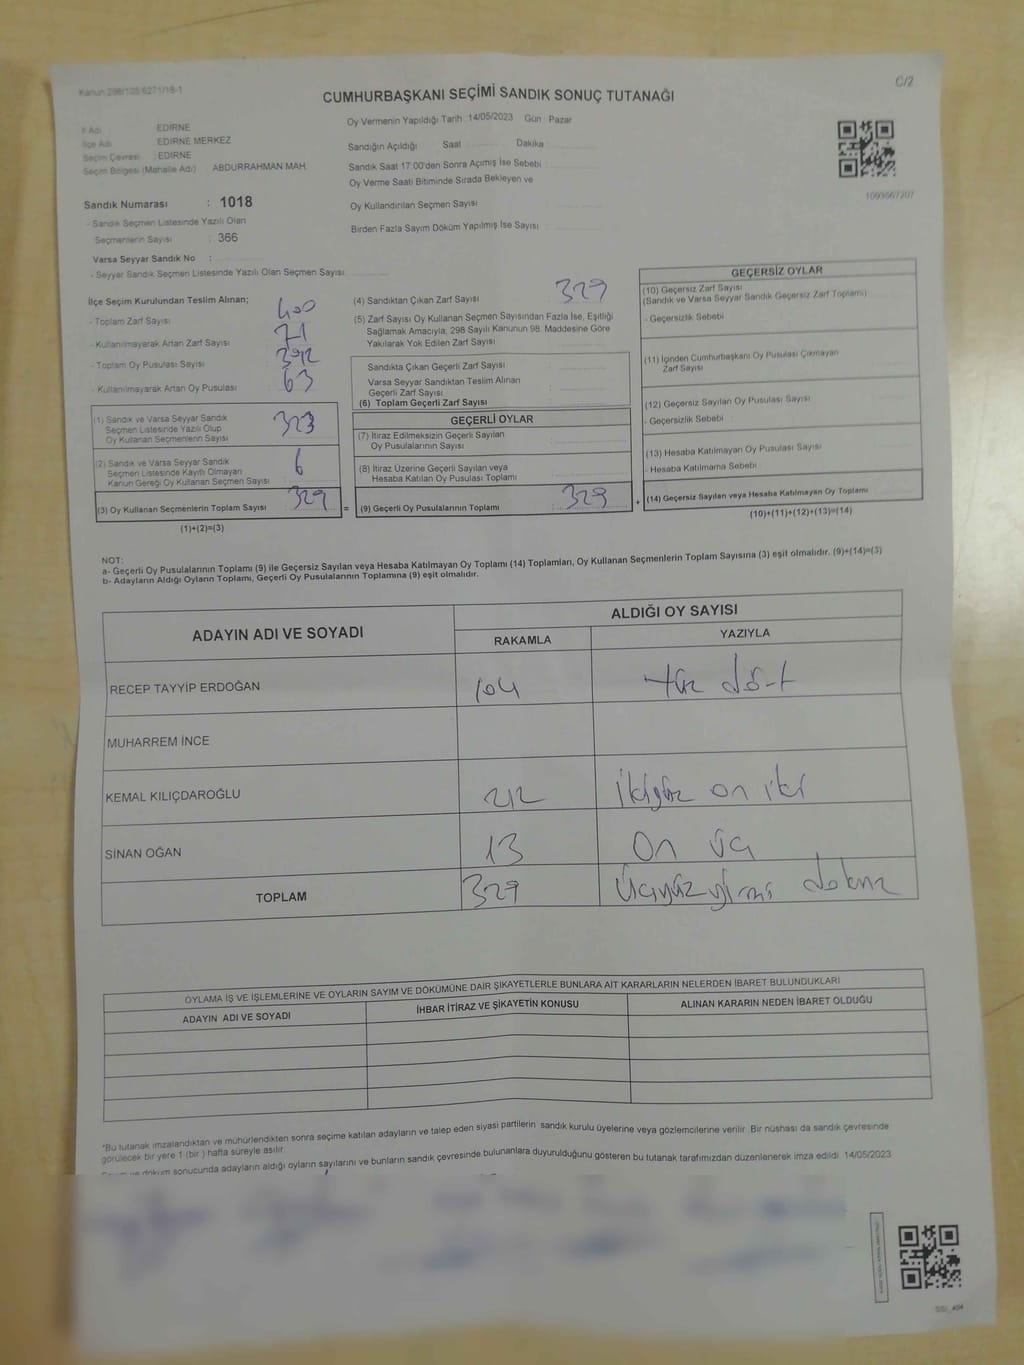 Kanun 298/105 6271/18-1
C/2
CUMHURBAŞKANI SEÇİMİ SANDIK SONUÇ TUTANAĞI
İl Adı EDIRNE
İlçe Adı EDIRNE MERKEZ
Seçim Çevresi : EDIRNE
Seçim Bölgesi (Mahalle Adı) ABDURRAHMAN MAH.
Sandık Numarası : 1018
- Sandık Seçmen Listesinde Yazılı Olan
Seçmenlerin Sayısı : 366
Varsa Seyyar Sandık No :
- Seyyar Sandık Seçmen Listesinde Yazılı Olan Seçmen Sayısı
Oy Vermenin Yapıldığı Tarih 14/05/2023 Gün : Pazar
Sandığın Açıldığı Saat Dakika
Sandık Saat 17:00'den Sonra Açımış İse Sebebi
Oy Verme Saati Bitiminde Sırada Bekleyen ve
Oy Kullandırılan Seçmen Sayısı
Birden Fazla Sayım Döküm Yapılmış İse Sayısı
1093567207
İlçe Seçim Kurulundan Teslim Alınan;
- Toplam Zarf Sayısı 400
- Kullanılmayarak Artan Zarf Sayısı 71
- Toplam Oy Pusulası Sayısı 392
- Kullanılmayarak Artan Oy Pusulası 63
(1) Sandık ve Varsa Seyyar Sandık
Seçmen Listesinde Yazılı Olup
Oy Kullanan Seçmenlerin Sayısı 323
(2) Sandık ve Varsa Seyyar Sandık
Seçmen Listesinde Kayıtlı Olmayan
Kanun Gereği Oy Kullanan Seçmen Sayısı 6
(3) Oy Kullanan Seçmenlerin Toplam Sayısı 329 =
(1)+(2)=(3)
(4) Sandıktan Çıkan Zarf Sayısı 329
(5) Zarf Sayısı Oy Kullanan Seçmen Sayısından Fazla İse, Eşitliği
Sağlamak Amacıyla, 298 Sayılı Kanunun 98. Maddesine Göre
Yakılarak Yok Edilen Zarf Sayısı
Sandıkta Çıkan Geçerli Zarf Sayısı
Varsa Seyyar Sandıktan Teslim Alınan
Geçerli Zarf Sayısı
(6) Toplam Geçerli Zarf Sayısı
GEÇERLİ OYLAR
(7) İtiraz Edilmeksizin Geçerli Sayılan
Oy Pusulalarının Sayısı
(8) İtiraz Üzerine Geçerli Sayılan veya
Hesaba Katılan Oy Pusulası Toplamı
(9) Geçerli Oy Pusulalarının Toplamı 329 +
GEÇERSİZ OYLAR
(10) Geçersiz Zarf Sayısı
(Sandık ve Varsa Seyyar Sandık Geçersiz Zarf Toplamı)
- Geçersizlik Sebebi
(11) İçinden Cumhurbaşkanı Oy Pusulası Çıkmayan
Zarf Sayısı
(12) Geçersiz Sayılan Oy Pusulası Sayısı
- Geçersizlik Sebebi
(13) Hesaba Katılmayan Oy Pusulası Sayısı
- Hesaba Katılmama Sebebi
(14) Geçersiz Sayılan veya Hesaba Katılmayan Oy Toplamı
(10)+(11)+(12)+(13)=(14)
NOT:
a- Geçerli Oy Pusulalarının Toplamı (9) ile Geçersiz Sayılan veya Hesaba Katılmayan Oy Toplamı (14) Toplamları, Oy Kullanan Seçmenlerin Toplam Sayısına (3) eşit olmalıdır. (9)+(14)=(3)
b- Adayların Aldığı Oyların Toplamı, Geçerli Oy Pusulalarının Toplamına (9) eşit olmalıdır.
ADAYIN ADI VE SOYADI
ALDIĞI OY SAYISI
RAKAMLA YAZIYLA
RECEP TAYYİP ERDOĞAN 104 Yüz dört
MUHARREM İNCE
KEMAL KILIÇDAROĞLU 212 İkiyüz on iki
SİNAN OĞAN 13 On üç
TOPLAM 329 Üçyüz yirmi dokuz
OYLAMA İŞ VE İŞLEMLERİNE VE OYLARIN SAYIM VE DÖKÜMÜNE DAİR ŞİKAYETLERLE BUNLARA AİT KARARLARIN NELERDEN İBARET BULUNDUKLARI
ADAYIN ADI VE SOYADI İHBAR İTİRAZ VE ŞİKAYETİN KONUSU ALINAN KARARIN NEDEN İBARET OLDUĞU
*Bu tutanak imzalandıktan ve mühürlendikten sonra seçime katılan adayların ve talep eden siyasi partilerin sandık kurulu üyelerine veya gözlemcilerine verilir. Bir nüshası da sandık çevresinde
görülecek bir yere 1 (bir ) hafta süreyle asılır.
döküm sonucunda adayların aldığı oyların sayılarını ve bunların sandık çevresinde bulunanlara duyurulduğunu gösteren bu tutanak tarafımızdan düzenlenerek imza edildi. 14/05/2023